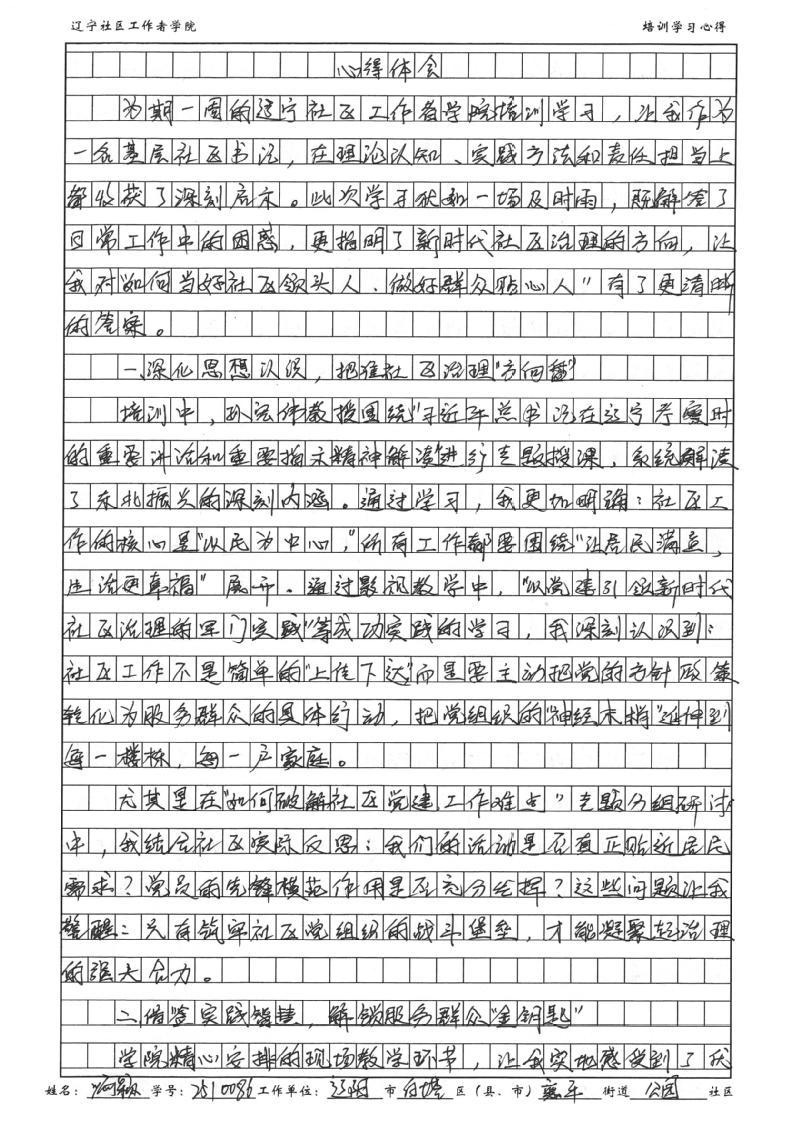 辽宁社区工作者学院 培训学习心得
心得体会
为期一周的辽宁社区工作者学院培训学习，让我作为
一名基层社区书记，在理论认知、实践方法和责任担当上
都收获了深刻启示。此次学习犹如一场及时雨，既解答了
日常工作中的困惑，更指明了新时代社区治理的方向，让
我对“如何当好社区领头人、做好群众贴心人”有了更清晰
的答案。
一、深化思想认识，把准社区治理“方向盘”
培训中，孙宏伟教授围绕“习近平总书记在辽宁考察时
的重要讲话和重要指示精神解读”进行专题授课，系统解读
了东北振兴的深刻内涵。通过学习，我更加明确：社区工
作的核心是“以民为中心，”所有工作都要围绕“让居民满意，
生活更幸福”展开。通过影视教学中，“以党建引领新时代
社区治理的军门实践”等成功实践的学习，我深刻认识到：
社区工作不是简单的“上传下达”而是要主动把党的方针政策
转化为服务群众的具体行动，把党组织的“神经末梢”延伸到
每一楼栋，每一户家庭。
尤其是在“如何破解社区党建工作难点”专题分组研讨
中，我结合社区实际反思：我们的活动是否真正贴近居民
需求？党员的先锋模范作用是否充分发挥？这些问题让我
警醒：只有筑牢社区党组织的战斗堡垒，才能凝聚起治理
的强大合力。
二、借鉴实践智慧，解锁服务群众“金钥匙”
学院精心安排的现场教学环节，让我实地感受到了优
姓名： 学号：2510086 工作单位：辽阳 市 白塔 区（县、市） 襄平 街道 公园 社区